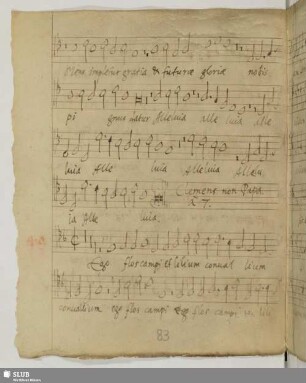 Mens impletur gratia & futuræ gloriæ nobis
pi gnus datur Alleluia alle luia alle
luia Alle luia Alleluia Allelu
ia Alle luia.
Clemens non Papa
Ego flos campi et lilium conual lium
conuallium ego flos campi ego flos campi et lili
83
SLUB